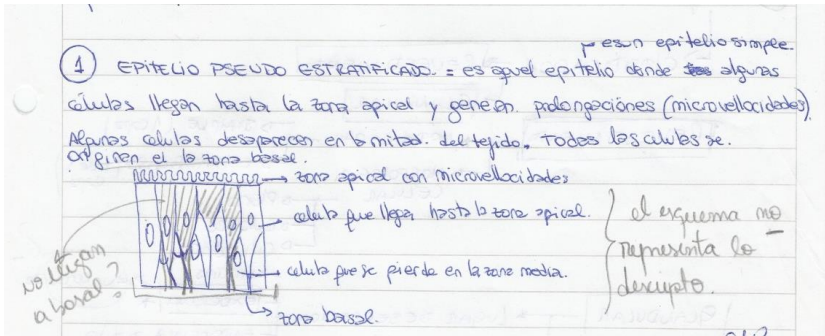 → es un epitelio simple.
① EPITELIO PSEUDO ESTRATIFICADO. = es aquel epitelio donde algunas
células llegan hasta la zona apical y generan prolongaciones (microvellocidades).
Algunas celulas desaparecen en la mitad del tejido. Todas las celulas se
originen el la zona basal.
→ zona apical con microvellocidades
→ celula que llega hasta la zona apical.
→ celula que se pierde en la zona media.
→ zona basal.
no llegan
a basal?
el esquema no
representa lo
descripto.